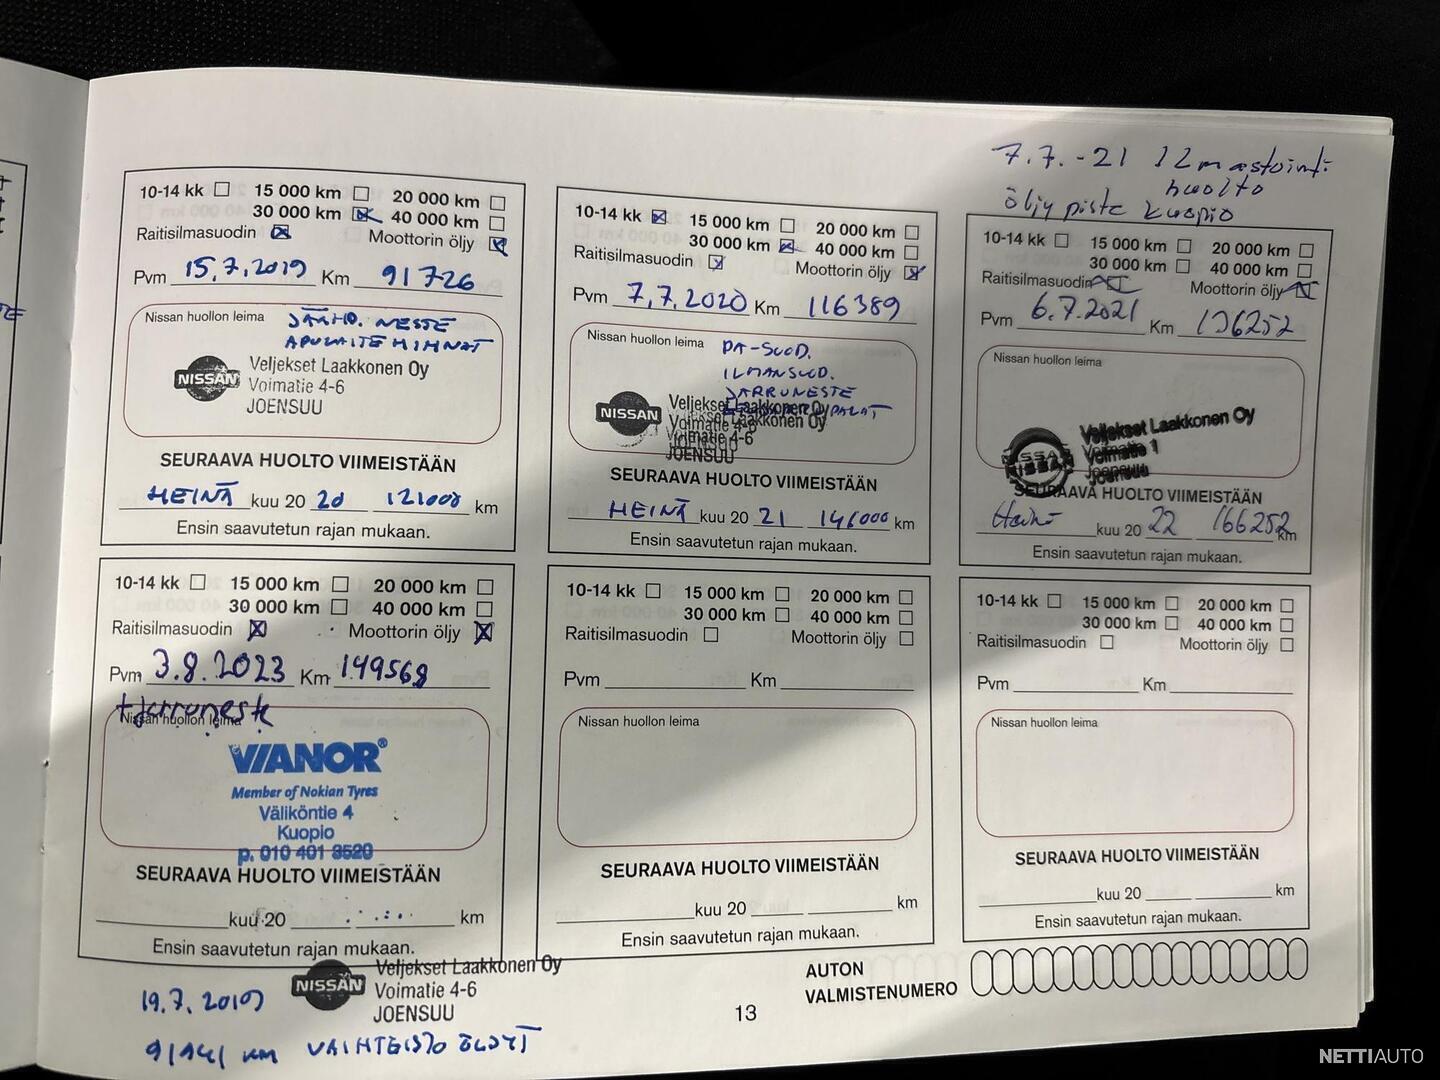 7.7.-21 Ilmastointi
huolto
öljypiste Kuopio
10-14 kk 15 000 km 20 000 km
30 000 km 40 000 km
Raitisilmasuodin Moottorin öljy
Pvm 15.7.2019 Km 91726
Nissan huollon leima JÄÄHD. NESTE
APULAITEHIHNAT
NISSAN Veljekset Laakkonen Oy
Voimatie 4-6
JOENSUU
SEURAAVA HUOLTO VIIMEISTÄÄN
HEINÄ kuu 20 20 121000 km
Ensin saavutetun rajan mukaan.
10-14 kk 15 000 km 20 000 km
30 000 km 40 000 km
Raitisilmasuodin Moottorin öljy
Pvm 7.7.2020 Km 116389
Nissan huollon leima PA-SUOD.
ILMANSUOD.
JARRUNESTE
NISSAN Veljekset Laakkonen Oy
Voimatie 4-6
JOENSUU
SEURAAVA HUOLTO VIIMEISTÄÄN
HEINÄ kuu 20 21 146000 km
Ensin saavutetun rajan mukaan.
10-14 kk 15 000 km 20 000 km
30 000 km 40 000 km
Raitisilmasuodin Moottorin öljy
Pvm 6.7.2021 Km 136252
Nissan huollon leima
NISSAN Veljekset Laakkonen Oy
Voimatie 1
Joensuu
SEURAAVA HUOLTO VIIMEISTÄÄN
Heinä kuu 20 22 166252 km
Ensin saavutetun rajan mukaan.
10-14 kk 15 000 km 20 000 km
30 000 km 40 000 km
Raitisilmasuodin Moottorin öljy
Pvm 3.8.2023 Km 149568
+jarruneste
Nissan huollon leima
VIANOR®
Member of Nokian Tyres
Väliköntie 4
Kuopio
p. 010 401 3520
SEURAAVA HUOLTO VIIMEISTÄÄN
kuu 20 km
Ensin saavutetun rajan mukaan.
10-14 kk 15 000 km 20 000 km
30 000 km 40 000 km
Raitisilmasuodin Moottorin öljy
Pvm Km
Nissan huollon leima
SEURAAVA HUOLTO VIIMEISTÄÄN
kuu 20 km
Ensin saavutetun rajan mukaan.
10-14 kk 15 000 km 20 000 km
30 000 km 40 000 km
Raitisilmasuodin Moottorin öljy
Pvm Km
Nissan huollon leima
SEURAAVA HUOLTO VIIMEISTÄÄN
kuu 20 km
Ensin saavutetun rajan mukaan.
19.7.2019 NISSAN Veljekset Laakkonen Oy
Voimatie 4-6
JOENSUU
km VAIHTEISTO ÖLJYT
13
AUTON
VALMISTENUMERO
NETTIAUTO